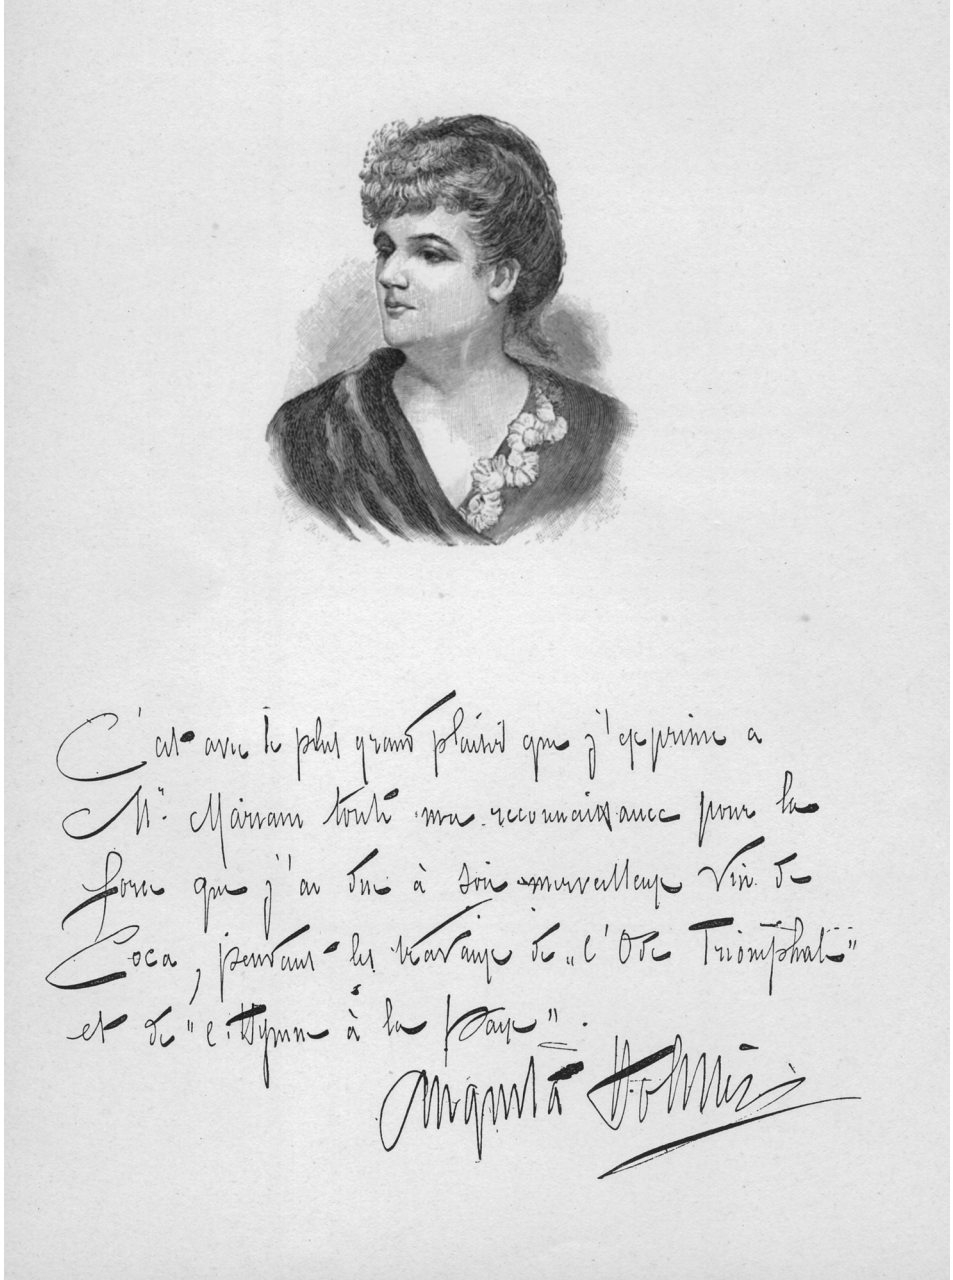 C'est avec le plus grand plaisir que j'exprime a
Mr. Mariani toute ma reconnaissance pour la
force que j'ai due à son merveilleux Vin de
Coca, pendant les travaux de „l'Ode Triomphale"
et de "l'Hymne à la Paix".
Augusta Holmès